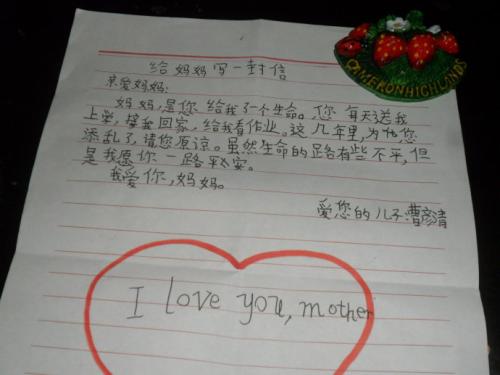 给妈妈写一封信
亲爱妈妈:
妈妈,是您给我了一个生命。您每天送我
上学,接我回家,给我看作业。这几年里,为您
添乱了,请您原谅。虽然生命的路有些不平,但
是我愿你一路平安。
我爱你,妈妈。
爱您的儿子:曹彦清
I love you, mother
CAMERONHIGHLANDS